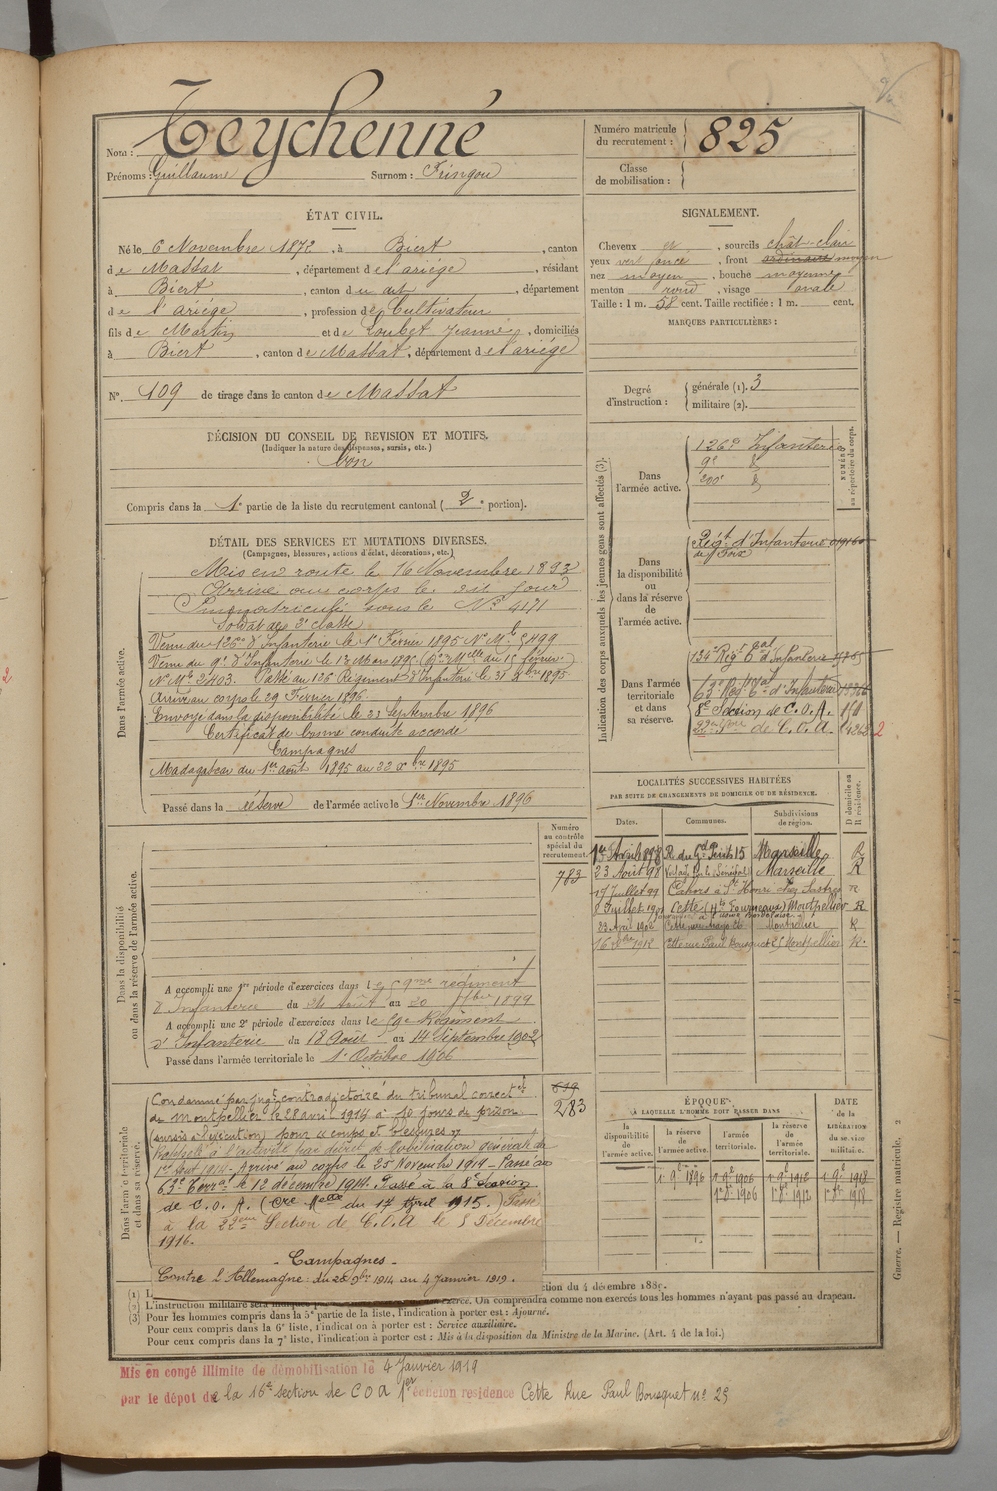 Nom : Teychenné
Prénoms : Guillaume Surnom : Fringou
Numéro matricule du recrutement : 825
Classe de mobilisation :
ÉTAT CIVIL.
Né le 6 Novembre 1872, à Biert, canton
de Massat, département de l'ariége, résidant
à Biert, canton du dit, département
de l'ariége, profession de Cultivateur
fils de Martin et de Loubet Jeanne, domiciliés
à Biert, canton de Massat, département de l'ariége
N° 109 de tirage dans le canton de Massat
SIGNALEMENT.
Cheveux , sourcils chât-clair
yeux vert foncé, front ordinaire moyen
nez moyen, bouche moyenne
menton rond, visage ovale
Taille : 1 m. 58 cent. Taille rectifiée : 1 m. cent.
MARQUES PARTICULIÈRES :
Degré d'instruction : générale (1). 3
militaire (2).
DÉCISION DU CONSEIL DE REVISION ET MOTIFS.
(Indiquer la nature des dispenses, sursis, etc.)
bon
Compris dans la 1e partie de la liste du recrutement cantonal (2e portion).
DÉTAIL DES SERVICES ET MUTATIONS DIVERSES.
(Campagnes, blessures, actions d'éclat, décorations, etc.)
Dans l'armée active.
Mis en route le 16 Novembre 1893
Arrivé au corps le dit jour
Immatriculé sous le No 4171
Soldat de 2e classe
Venu du 126e d'Infanterie le 1er Février 1895 No Mle 5499
Venu du 9e d'Infanterie le 13 Mars 1895 (Don Mlle du 15 février)
No Mle 2403. Passé au 126 Régiment d'Infanterie le 31 Xbre 1895
Arrivé au corps le 29 Février 1896
Envoyé dans la disponibilité le 23 Septembre 1896
Certificat de bonne conduite accordé
Campagnes
Madagascar du 1er août 1895 au 22 Xbre 1895
Passé dans la réserve de l'armée active le 1er Novembre 1896
Indication des corps auxquels les jeunes gens sont affectés (3).
NUMÉRO au répertoire du corps.
Dans l'armée active.
126e Infanterie
9e d
200e d
Dans la disponibilité ou dans la réserve de l'armée active.
Régt d'Infanterie
de Foix
Dans l'armée territoriale et dans sa réserve.
134e Régt d'Infanterie
63e Régt d'Infanterie
8e Section de C.O.A.
22eme Son de C.O.A.
LOCALITÉS SUCCESSIVES HABITÉES
PAR SUITE DE CHANGEMENTS DE DOMICILE OU DE RÉSIDENCE.
Dates. Communes. Subdivisions de région. D domicile ou R résidence.
1er Avril 1898 R du Gd Puits 15 Marseille R
23 Août 98 Marseille R
17 Juillet 99 Cahors
Juillet 190 Cette Montpellier R
23 Avril 1902 Cette Montpellier R
16 1912 Cette rue Paul Bousquet 25 Montpellier R.
Dans la disponibilité ou dans la réserve de l'armée active.
Numéro au contrôle spécial du recrutement.
783
A accompli une 1re période d'exercices dans le 59me régiment
d'Infanterie du 24 août au 20 7bre 1899
A accompli une 2e période d'exercices dans le 59e Régiment
d'Infanterie du 18 Août au 14 Septembre 1902
Passé dans l'armée territoriale le 1er Octobre 1906
Dans l'armée territoriale et dans sa réserve.
283
Condamné par jugt contradictoire du tribunal correctel
de Montpellier le 28 avril 1914 à 10 jours de prison
(sursis à l'exécution) pour coups et blessures
Rappelé à l'activité par décret de Mobilisation générale du
1er Aout 1914 - Arrivé au corps le 25 Novembre 1914 - Passé au
63e Terral le 12 décembre 1914. Passé à la 8e Section
de C.O.A. (Cre Melle du 17 Avril 1915.) Passé
à la 22eme Section de C.O.A le 5 Décembre
1916.
- Campagnes -
Contre l'Allemagne : du 25 9bre 1914 au 4 Janvier 1919.
ÉPOQUE
A LAQUELLE L'HOMME DOIT PASSER DANS
la disponibilité de l'armée active. la réserve de l'armée active. l'armée territoriale. la réserve de l'armée territoriale. DATE de la LIBÉRATION du service militaire.
1er 9bre 1896 1er 9bre 1906 1er 9bre 1912 1er 9bre 1918
1er 8bre 1906 1er 8bre 1912 1er 8bre 1918
(1) L
tion du 4 décembre 1889.
(2) L'instruction militaire sera exercé. On comprendra comme non exercés tous les hommes n'ayant pas passé au drapeau.
(3) Pour les hommes compris dans la 5e partie de la liste, l'indication à porter est : Ajourné.
Pour ceux compris dans la 6e liste, l'indication à porter est : Service auxiliaire.
Pour ceux compris dans la 7e liste, l'indication à porter est : Mis à la disposition du Ministre de la Marine. (Art. 4 de la loi.)
Guerre. — Registre matricule. 2
Mis en congé illimité de démobilisation le 4 Janvier 1919
par le dépot de la 16e section de COA 1er échelon résidence Cette Rue Paul Bousquet no 25